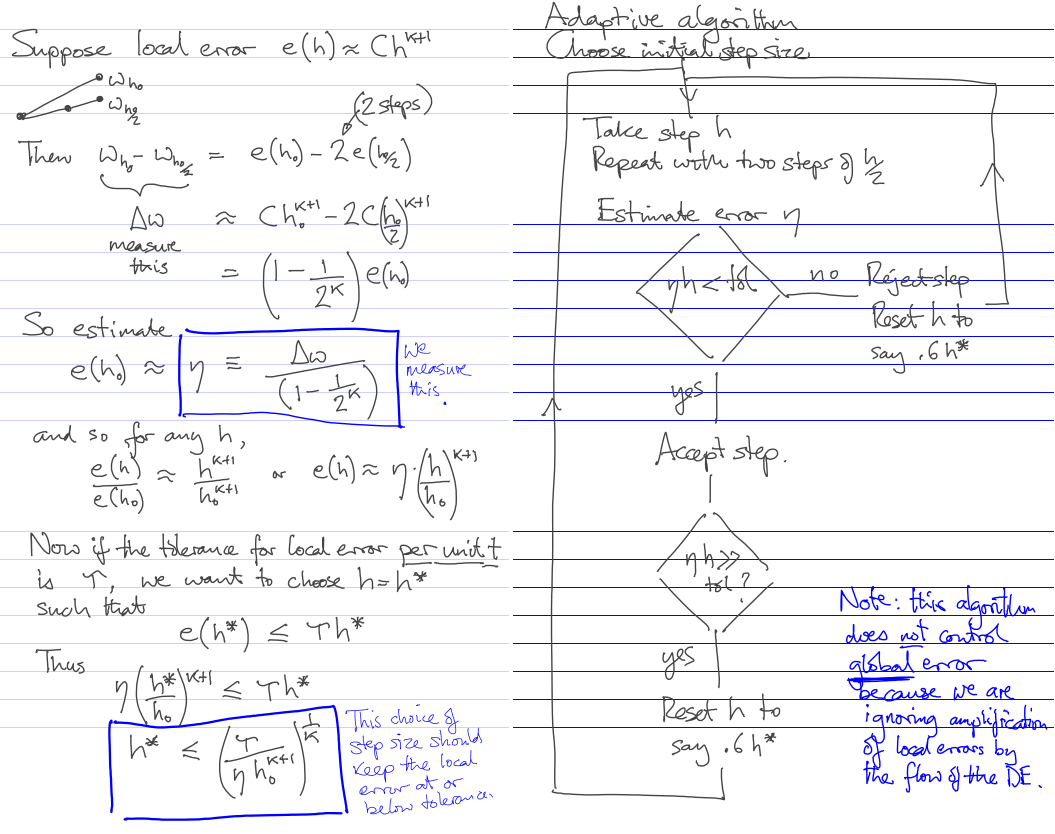 Suppose local error e(h) ≈ Ch^{K+1}
ω_{h₀}
ω_{h₀/2}
(2 steps)
Then ω_{h₀} - ω_{h₀/2} = e(h₀) - 2e(h₀/2)
Δω ≈ Ch₀^{K+1} - 2C(h₀/2)^{K+1}
measure
this
= (1 - 1/2^K) e(h₀)
So estimate
e(h₀) ≈ η ≡ Δω/(1 - 1/2^K)
We
measure
this.
and so for any h,
e(h)/e(h₀) ≈ h^{K+1}/h₀^{K+1} or e(h) ≈ η·(h/h₀)^{K+1}
Now if the tolerance for local error per unit t
is T, we want to choose h = h*
such that
e(h*) ≤ Th*
Thus
η(h*/h₀)^{K+1} ≤ Th*
h* ≤ (T/(η h₀^{K+1}))^{1/K}
This choice of
step size should
keep the local
error at or
below tolerance.
Adaptive algorithm
Choose initial step size.
Take step h
Repeat with two steps of h/2
Estimate error η
ηh < tol
no
Reject step
Reset h to
say .6h*
yes
Accept step.
ηh ≫
tol?
yes
Reset h to
say .6h*
Note: this algorithm
does not control
global error
because we are
ignoring amplification
of local errors by
the flow of the DE.